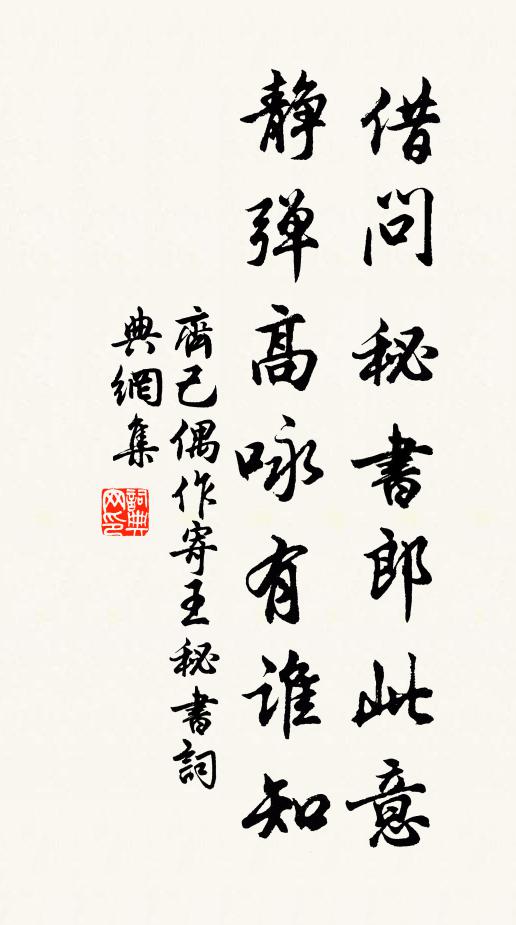 借问秘書郎此意
静弹高咏有谁知
齊己偶作寄王秘書詞
典網集
詞典网印